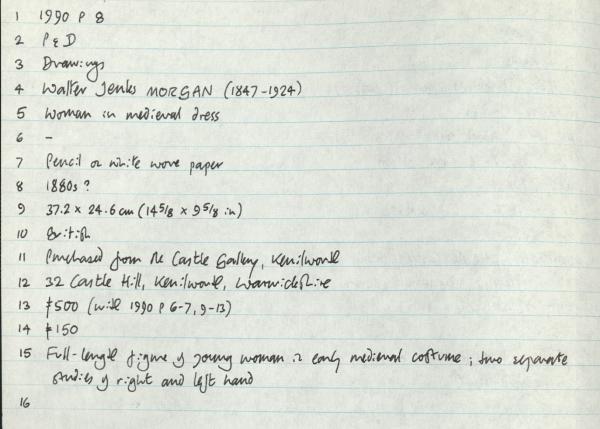 1 1990 P 8
2 P & D
3 Drawings
4 Walter Jenks MORGAN (1847-1924)
5 Woman in medieval dress
6 -
7 Pencil on white wove paper
8 1880s?
9 37.2 x 24.6 cm (14 5/8 x 9 5/8 in)
10 British
11 Purchased from the Castle Gallery, Kenilworth
12 32 Castle Hill, Kenilworth, Warwickshire
13 £500 (with 1990 P 6-7, 9-13)
14 £150
15 Full-length figure of young woman in early medieval costume; two separate
studies of right and left hand
16